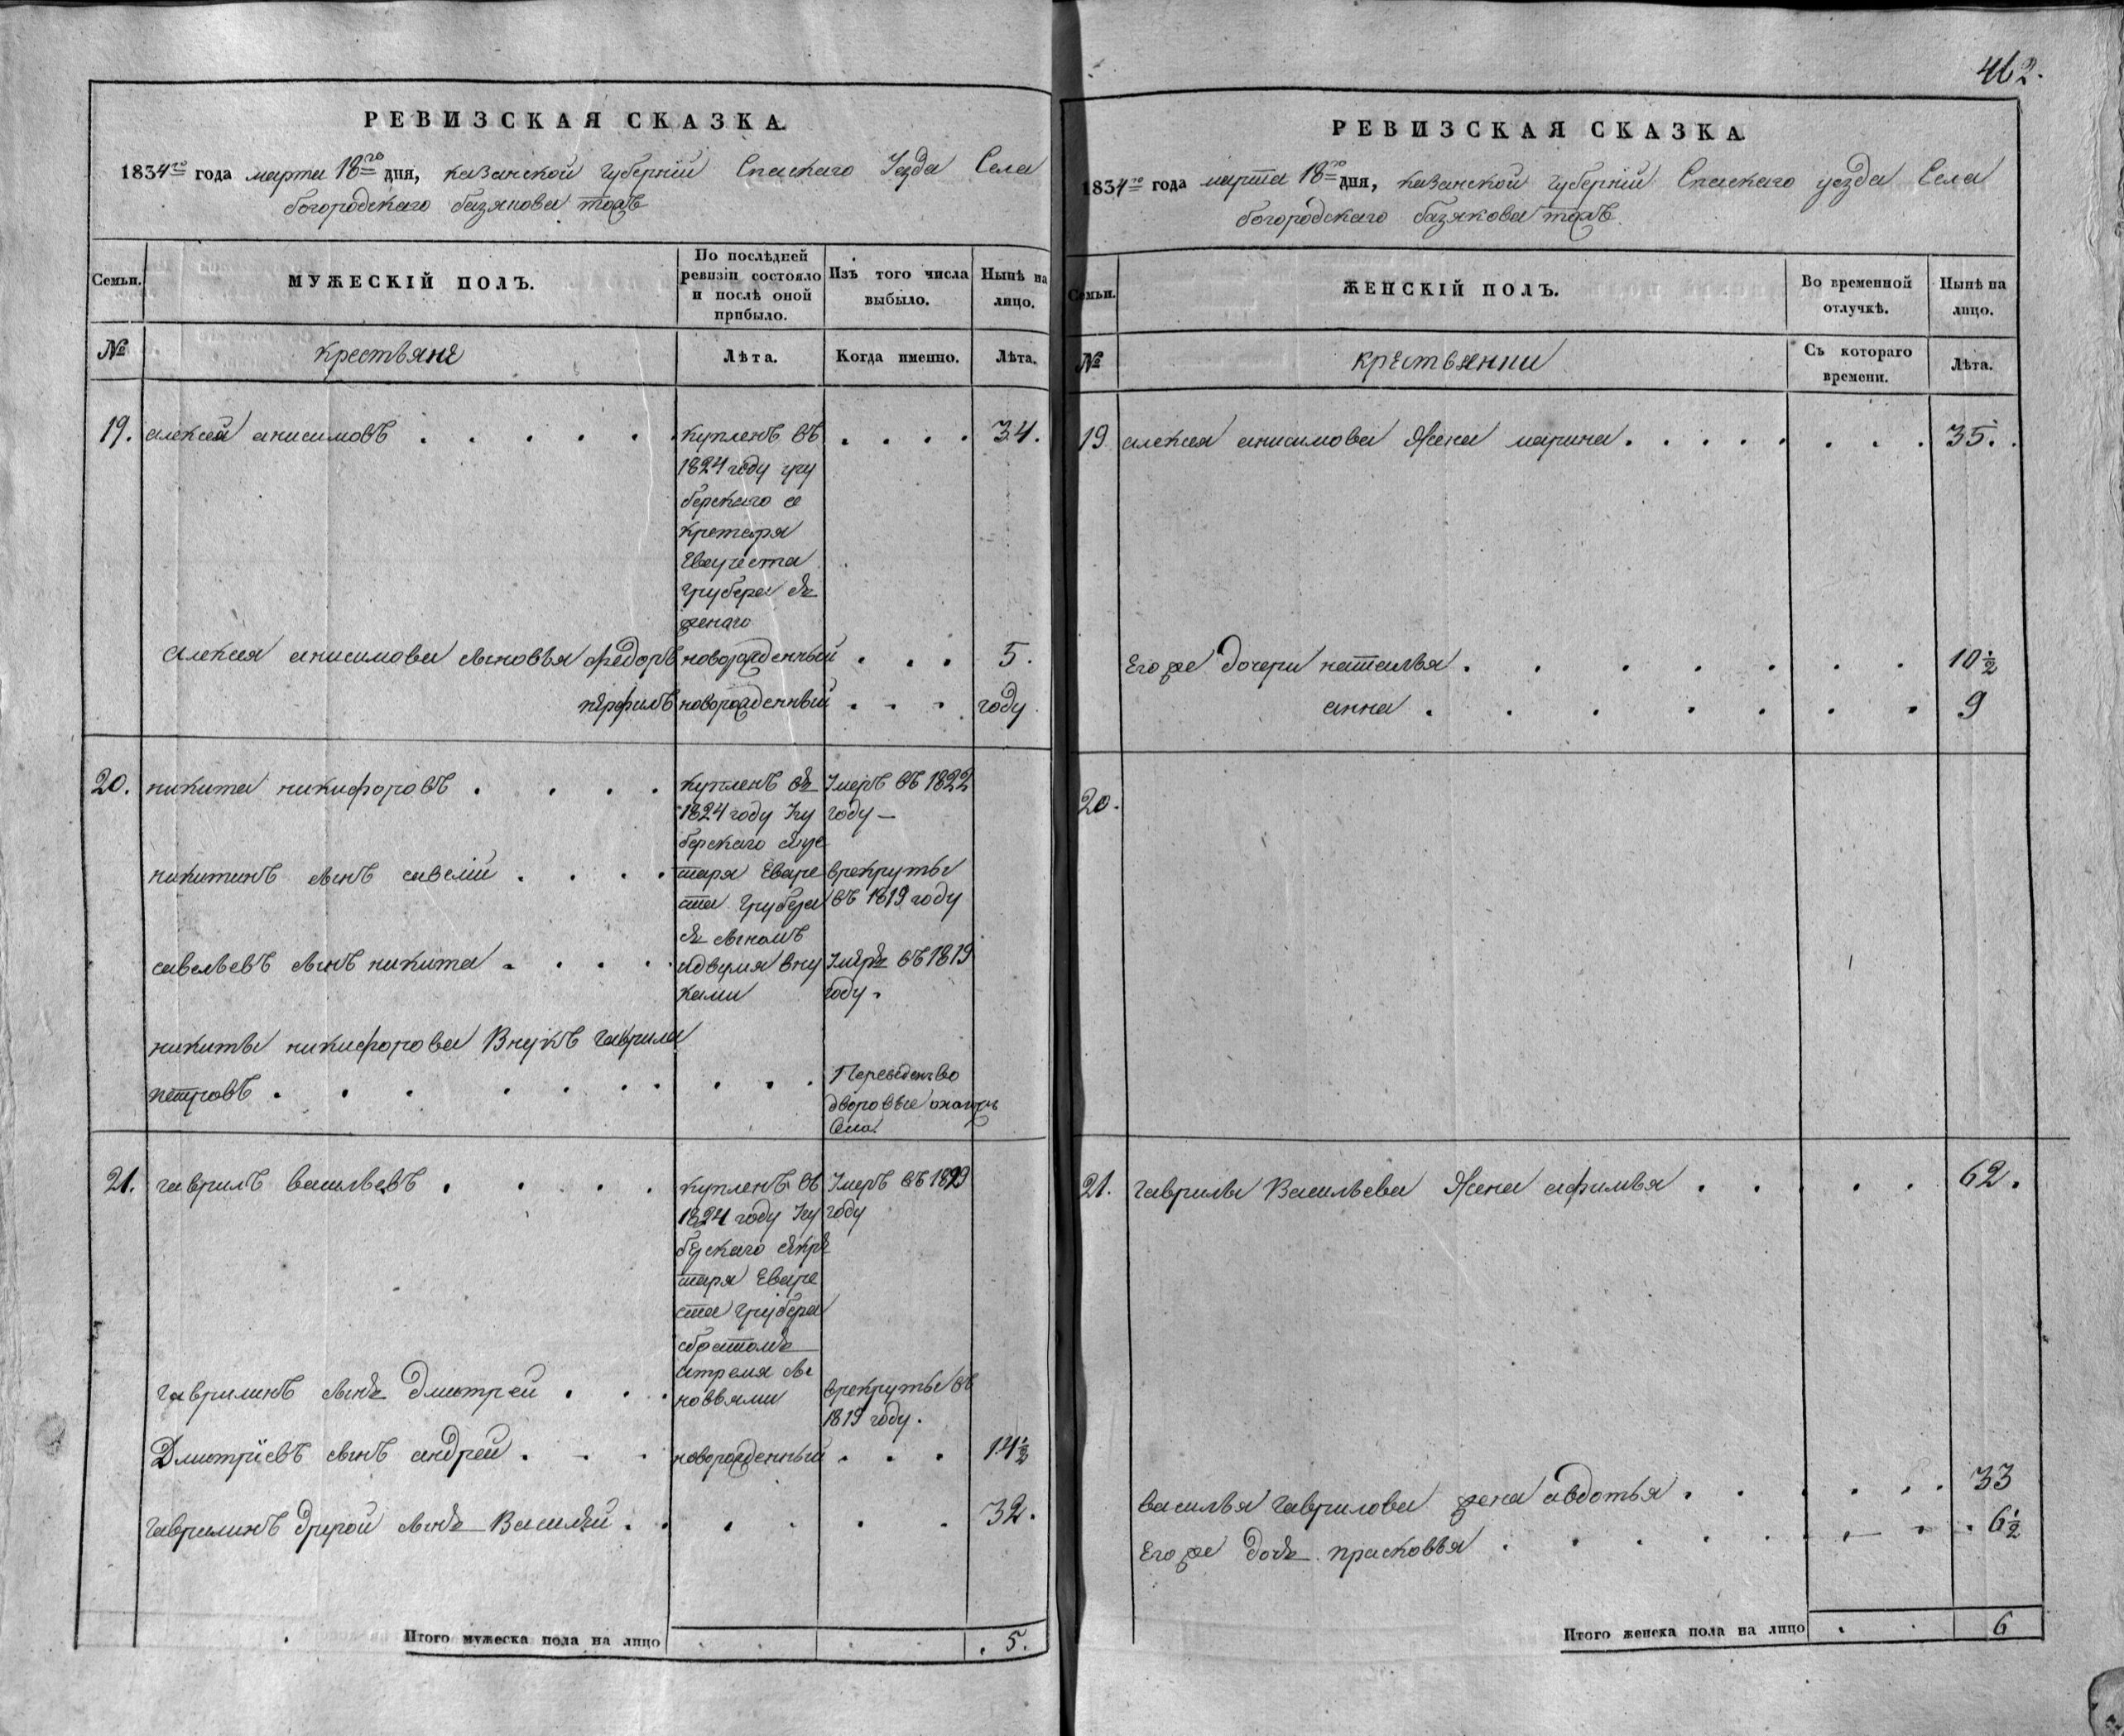 462.
РЕВИЗСКАЯ СКАЗКА.
1834го года марта 18го дня, казанской губернiй Спаскаго Уезда Села
богородскаго базякова тожъ
Семьи.
МУЖЕСКIЙ ПОЛЪ.
По послѣдней ревизiи состояло и послѣ оной прибыло.
Изъ того числа выбыло.
Нынѣ на лицо.
№
крестьяне
Лѣта.
Когда именно.
Лѣта.
19. алексей анисимовъ . . . . . . купленъ въ . . . . 34.
1824 году угу
берскаго се
кретаря
Евариста
Грубера зъ
женаго
Алексея анисимова сыновья федоръ новорожденный . . . 5.
перфилъ новорожденный . . . году
20. никита никифоровъ . . . . купленъ въ Умеръ въ 1822
1824 году Угу году —
берскаго секре
никитинъ сынъ савелiй . . . . таря Евари врекруты
ста Грубера въ 1819 году
съ сыномъ
савельевъ сынъ никита . . . . идвумя вну Умеръ въ 1819
ками году.
никиты никифорова Внукъ гаврила
петровъ . . . . . . . . . . Переведенъ во
дворовые онагожъ
Села.
21. гаврилъ васильевъ . . . . купленъ въ Умеръ въ 1829
1824 году Угу году
берскаго секре
таря Евари
ста Грубера
сбратомъ
итремя сы
гаврилинъ сынъ дмитрей . . . новьями врекруты въ
1819 году.
Дмитрiевъ сынъ андрей . . . новорожденный . . . 14½
гаврилинъ другой сынъ Василей . . . . . . 32.
Итого мужеска пола на лицо . . . 5.
РЕВИЗСКАЯ СКАЗКА
1834го года марта 18го дня, казанской губернiй Спаскаго уезда Села
богородскаго базякова тожъ.
Семьи.
ЖЕНСКIЙ ПОЛЪ.
Во временной отлучкѣ.
Нынѣ на лицо.
№
крестьянки
Съ котораго времени.
Лѣта.
19 алексея анисимова Жена марина . . . . . . . . 35.
Его же дочери наталья . . . . . . . 10½
анна . . . . . . . 9
20.
21. гаврилы Васильева Жена афимья . . . . . 62.
василья гаврилова жена авдотья . . . . . . 33
Его же дочь прасковья . . . . . . . . 6½
Итого женска пола на лицо . . 6